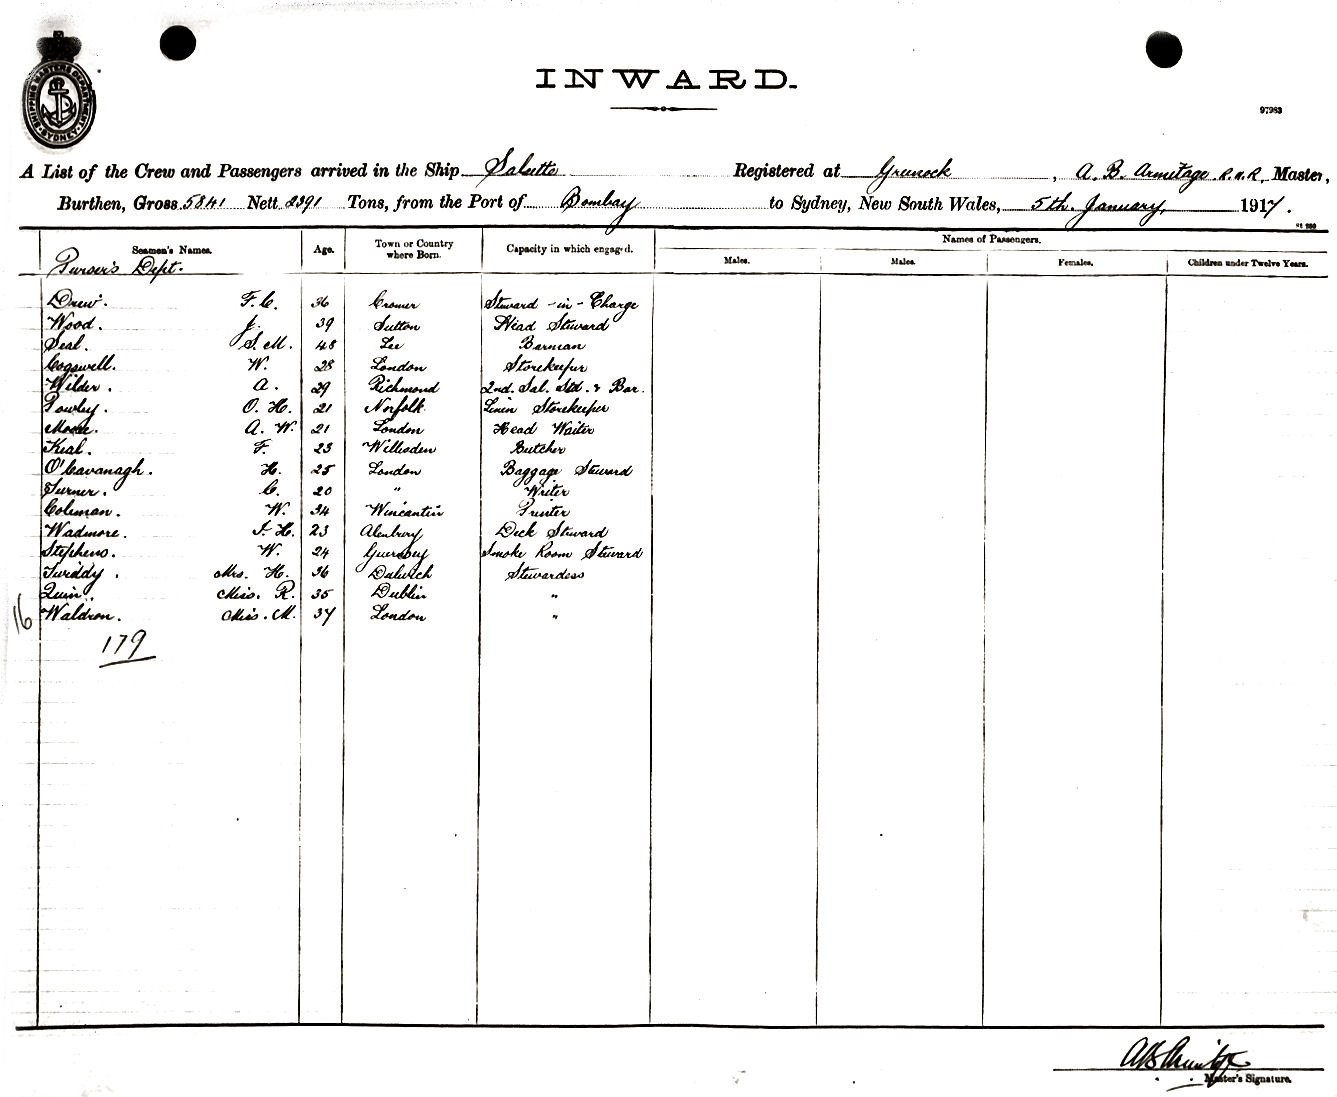 SHIPPING MASTERS DEPARTMENT. SYDNEY
INWARD.
97983
A List of the Crew and Passengers arrived in the Ship Salsette Registered at Greenock, A. B. Armitage R.N.R, Master,
Burthen, Gross 5841 Nett 2391 Tons, from the Port of Bombay to Sydney, New South Wales, 5th January, 1917.
Seamen's Names. Age. Town or Country where Born. Capacity in which engaged. Names of Passengers.
Males. Males. Females. Children under Twelve Years.
Purser's Dept.
Drew. F. C. 36 Cromer Steward -in- Charge
Wood. J. 39 Sutton Head Steward
Seal. S. M. 48 Lee Barman
Cogswell. W. 28 London Storekeeper
Wilder. A. 29 Richmond 2nd. Sal. Std. & Bar.
Powley. O. H. 21 Norfolk Linen Storekeeper
Moore. A. W. 21 London Head Waiter
Keal. F. 23 Willesden Butcher
O'Cavanagh. H. 25 London Baggage Steward
Turner. C. 20 " Writer
Coleman. W. 34 Wincantin Printer
Wadmore. H. 23 Deck Steward
Stephens. W. 24 Guernsey Smoke Room Steward
Twiddy. Mrs. H. 36 Dulwich Stewardess
Quin. Miss. R. 35 Dublin "
16 Waldron. Miss. M. 37 London "
179
AB Armitage
Master's Signature.